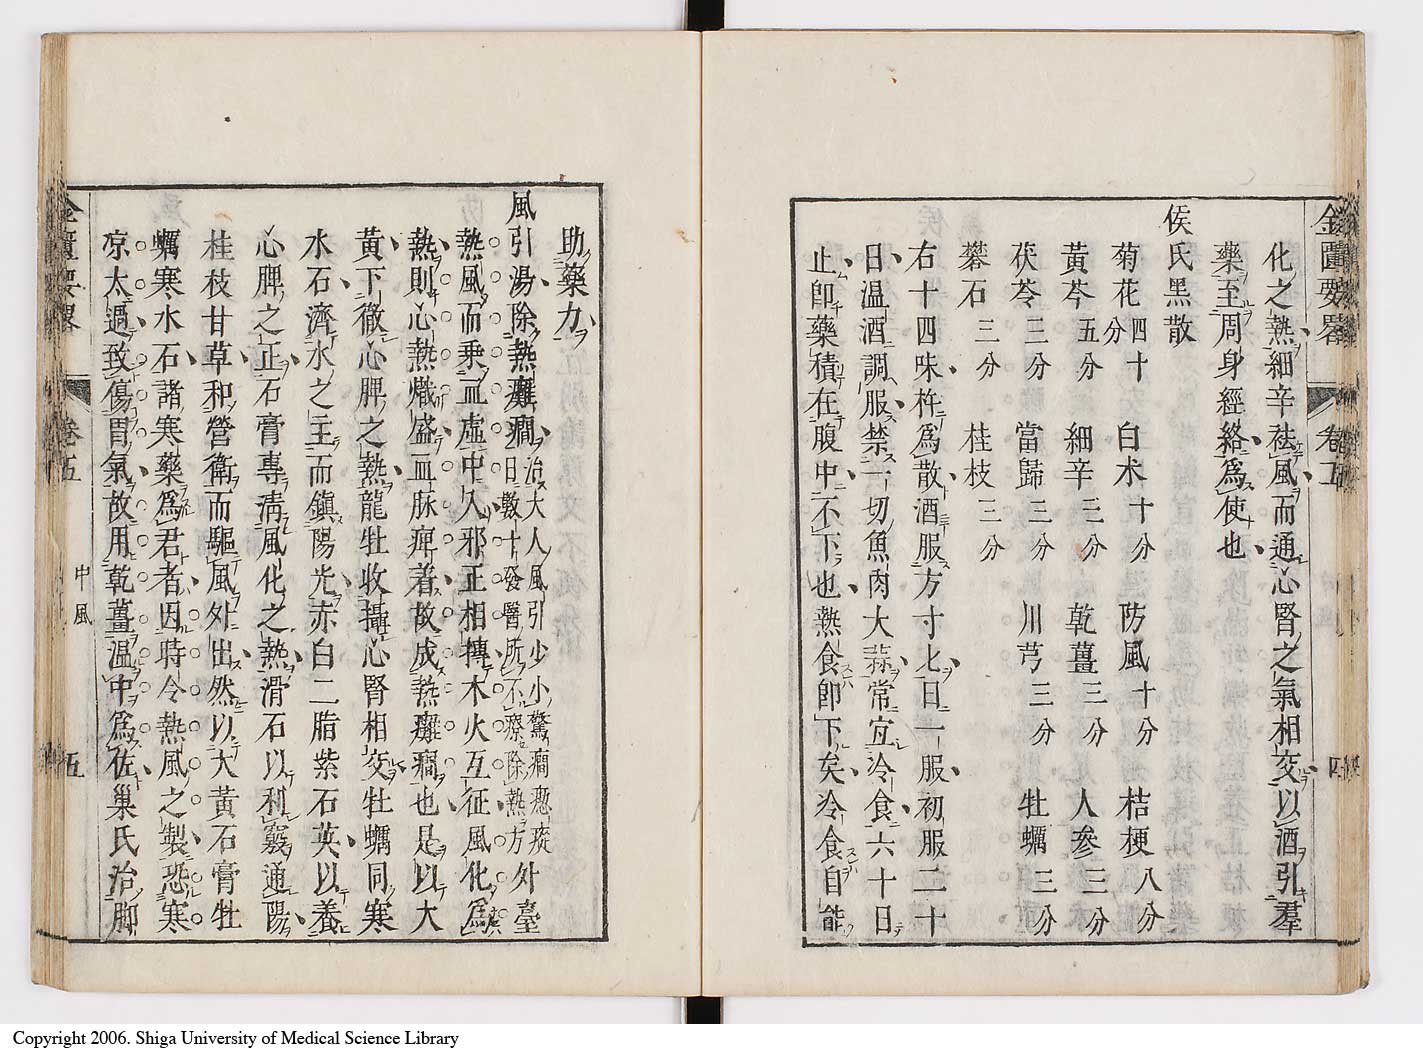 金匱要畧 卷五 四
化之熱細辛祛風而通心腎之氣相交以酒引羣
藥至周身經絡爲使也
侯氏黑散
菊花四十分 白朮十分 防風十分 桔梗八分
黃芩五分 細辛三分 乾薑三分 人參三分
茯苓三分 當歸三分 川芎三分 牡蠣三分
礬石三分 桂枝三分
右十四味杵爲散酒服方寸匕日一服初服二十
日溫酒調服禁一切魚肉大蒜常宜冷食六十日
止卽藥積在腹中不下也熱食卽下矣冷食自能
助藥力
風引湯除熱癱癇治大人風引少小驚癇瘛瘲日數十發醫所不療除熱方外臺
熱風而乘血虛中入邪正相摶木火互征風化爲
熱則心熱熾盛血脉痺着故成熱癱癇也是以大
黃下徹心脾之熱龍牡收攝心腎相交牡蠣同寒
水石濟水之主而鎭陽光赤白二脂紫石英以養
心脾之正石膏專淸風化之熱滑石以利竅通陽
桂枝甘草和營衛而驅風外出然以大黃石膏牡
蠣寒水石諸寒藥爲君者因時令熱風之製恐寒
凉太過致傷胃氣故用乾薑溫中爲佐巢氏治脚
金匱要畧 卷五 中風 五
Copyright 2006. Shiga University of Medical Science Library